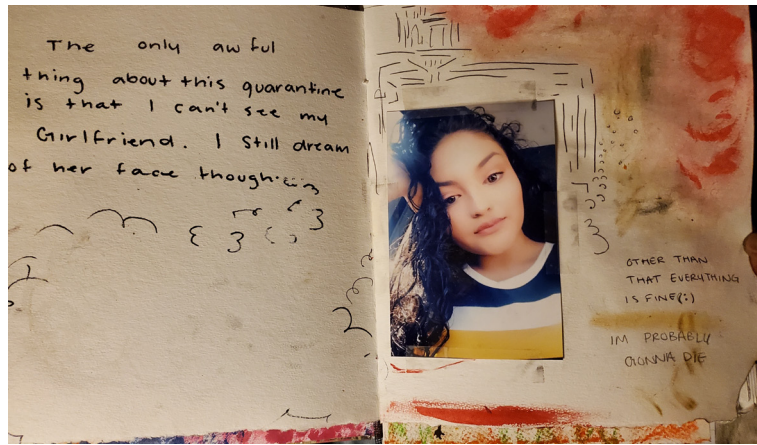 The only awful
thing about this quarantine
is that I can't see my
Girlfriend. I still dream
of her face though...
OTHER THAN
THAT EVERYTHING
IS FINE(:)
IM PROBABLY
GONNA DIE